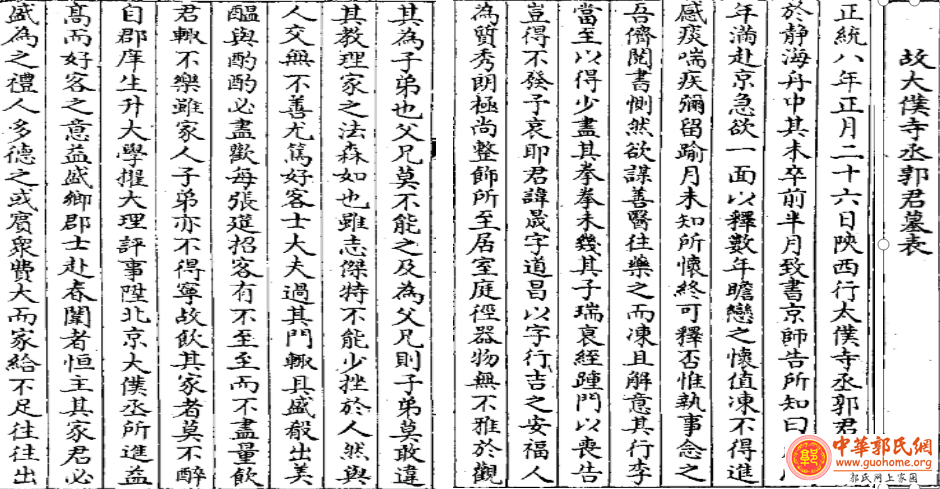 故大僕寺丞郭君墓表
正統八年正月二十六日陝西行太僕寺丞郭君
於静海舟中其未卒前半月致書京師告所知曰
年滿赴京急欲一面以釋數年瞻戀之懷值凍不得進
感痰喘疾彌留踰月未知所懷終可釋否惟執事念之
吾儕閱書惻然欲謀善醫往藥之而凍且解意其行李
當至以得少盡其拳拳未幾其子瑞哀絰踵門以喪告
豈得不發予哀耶君諱晟字道昌以字行吉之安福人
為質秀朗極尚整飾所至居室庭徑器物無不雅於觀
其為子弟也父兄莫不能之及為父兄則子弟莫敢違
其教理家之法森如也雖志傑特不能少挫於人然與
人交無不善尤篤好客士大夫過其門輙具盛殽出美
醞與酌酌必盡歡每張筵招客有不至至而不盡量飲
君輙不樂雖家人子弟亦不得寧故飲其家者莫不醉
自郡庠生升大學擢大理評事陞北京大僕丞所進益
髙而好客之意益盛鄉郡士赴春闈者恒主其家君必
盛為之禮人多德之或賔衆費大而家給不足往往出
中華郭氏網
www.guohome.org
郭氏网上家园